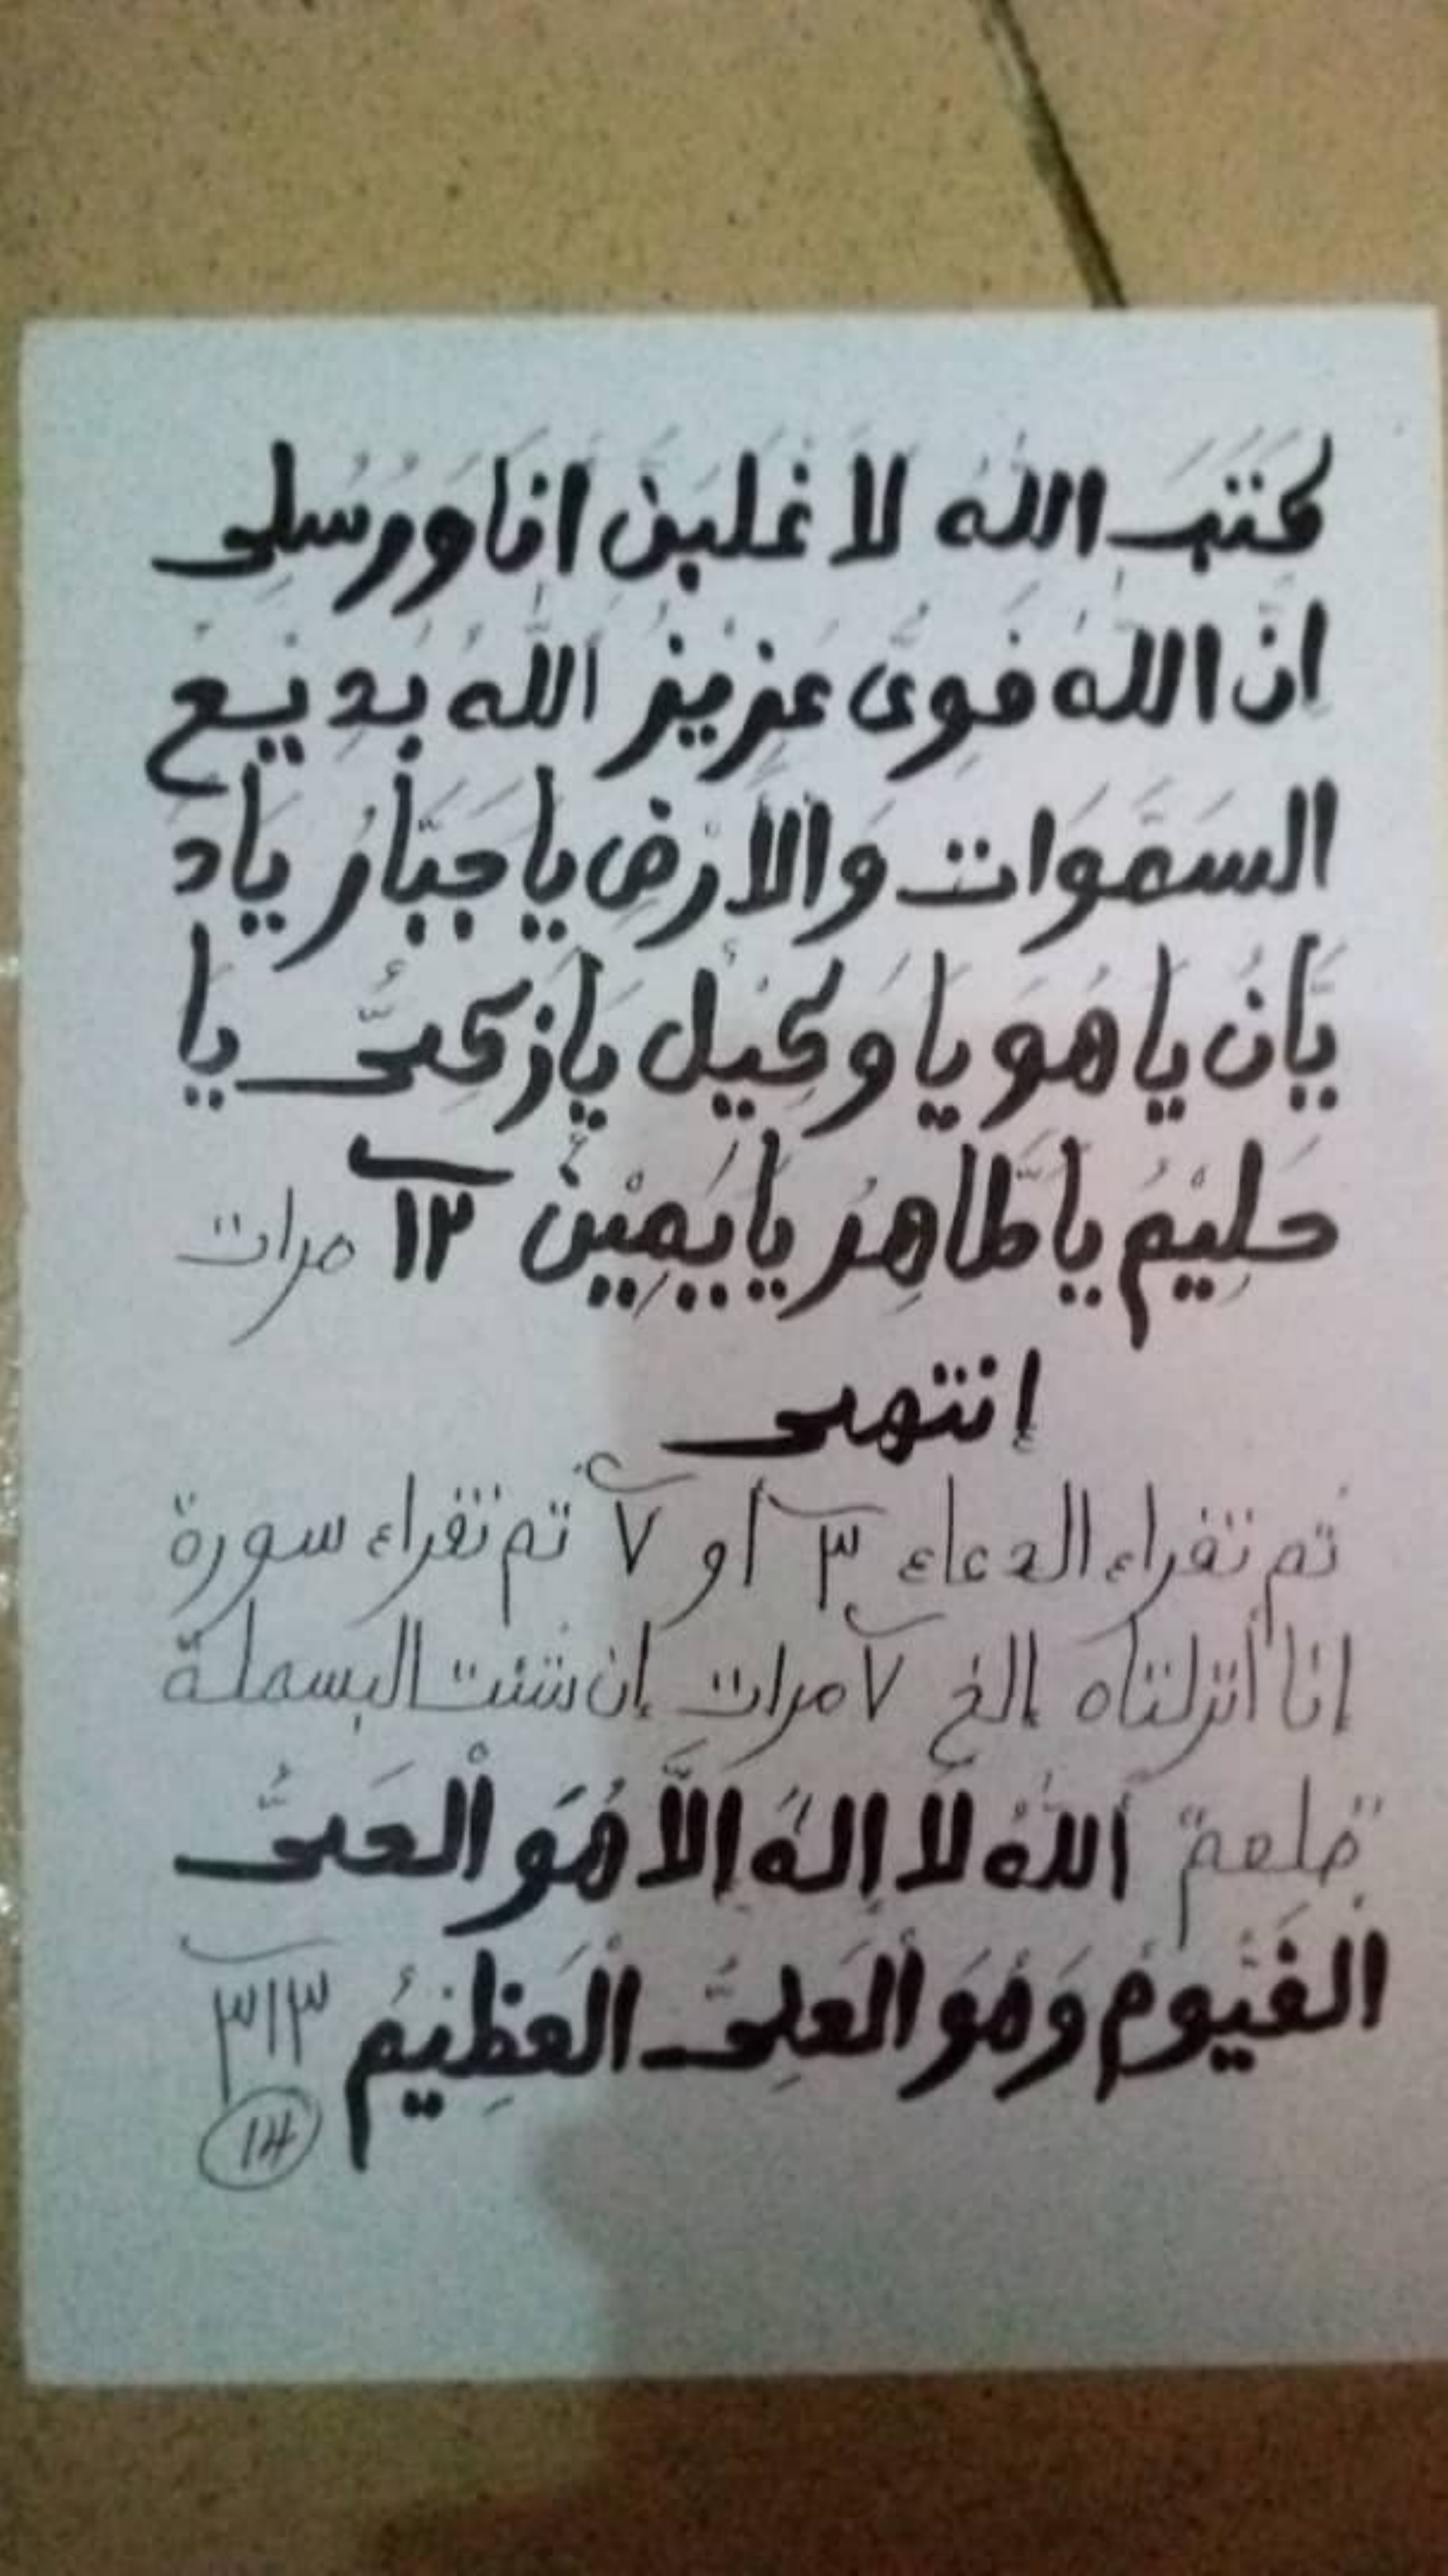 كَتَبَ اللهُ لَا غْلَبَنَّ اَنَا وَرُسُلِى
اِنَّ اللهَ قَوِىٌّ عَزِيزُ اَللهُ بَدِيْعُ
السَّمَوَاتِ وَالْاَرْضِ يَا جَبَّارُ يَادَ
يَّانُ يَا هُوَ يَا وَكِيْلُ يَا زَكِىُّ يَا
حَلِيْمُ يَا طَاهِرُ يَا يَمِيْنُ ١٢ مرات
إنتهى
تم تقراء الدعاء ٣ أو ٧ تم تقراء سورة
انا أنزلناه إلخ ٧ مرات إن شئت البسملة
اَللهُ لَا اِلَهَ اِلَّا هُوَ الْحَىُّ
الْقَيُّومُ وَهُوَ الْعَلِىُّ الْعَظِيْمُ ٣١٣
14